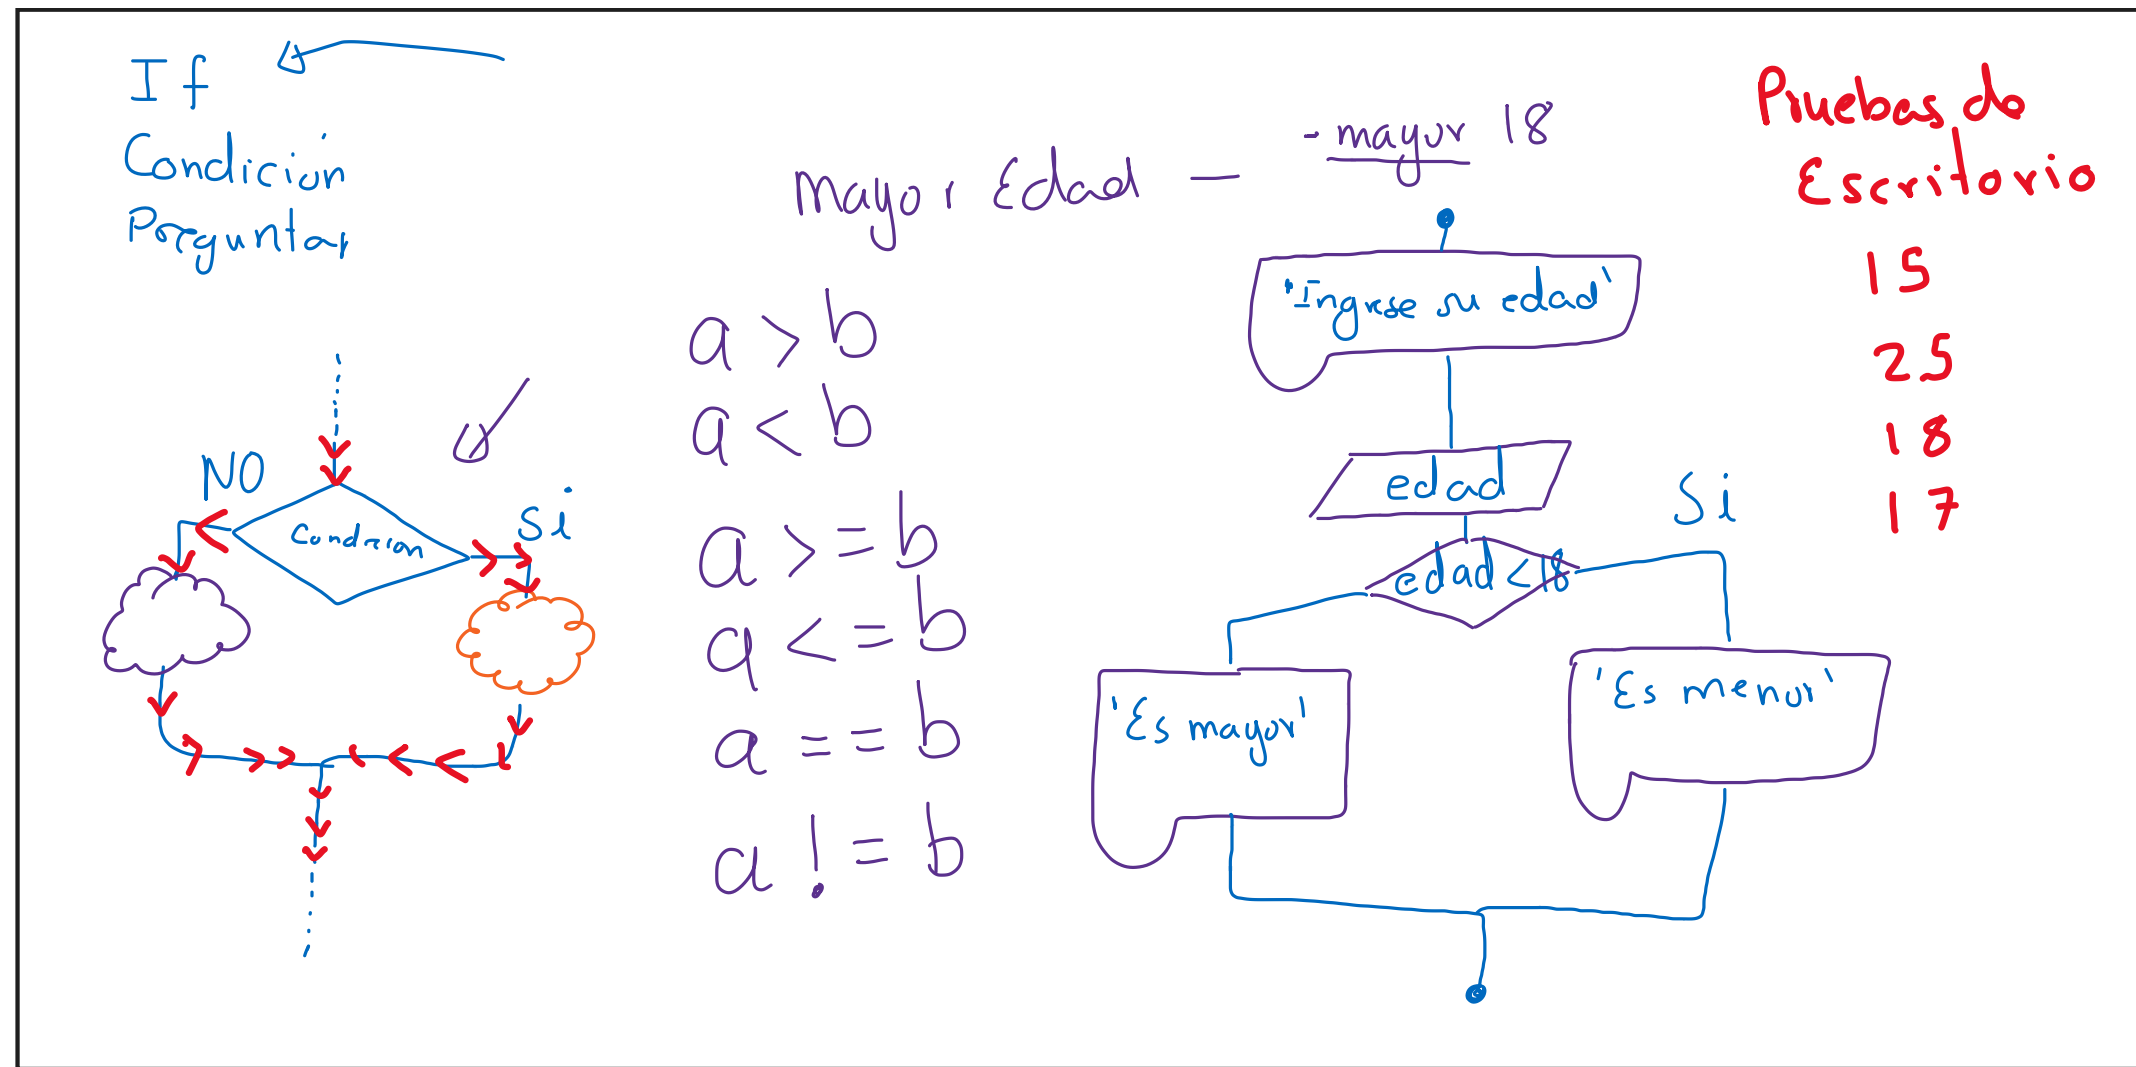 If
Condición
Preguntar
NO
Condicion
Si
Mayor Edad — - mayor 18
a > b
a < b
a >= b
a <= b
a == b
a != b
'Ingrese su edad'
edad
edad < 18
Si
'Es mayor'
'Es menor'
Pruebas de
Escritorio
15
25
18
17